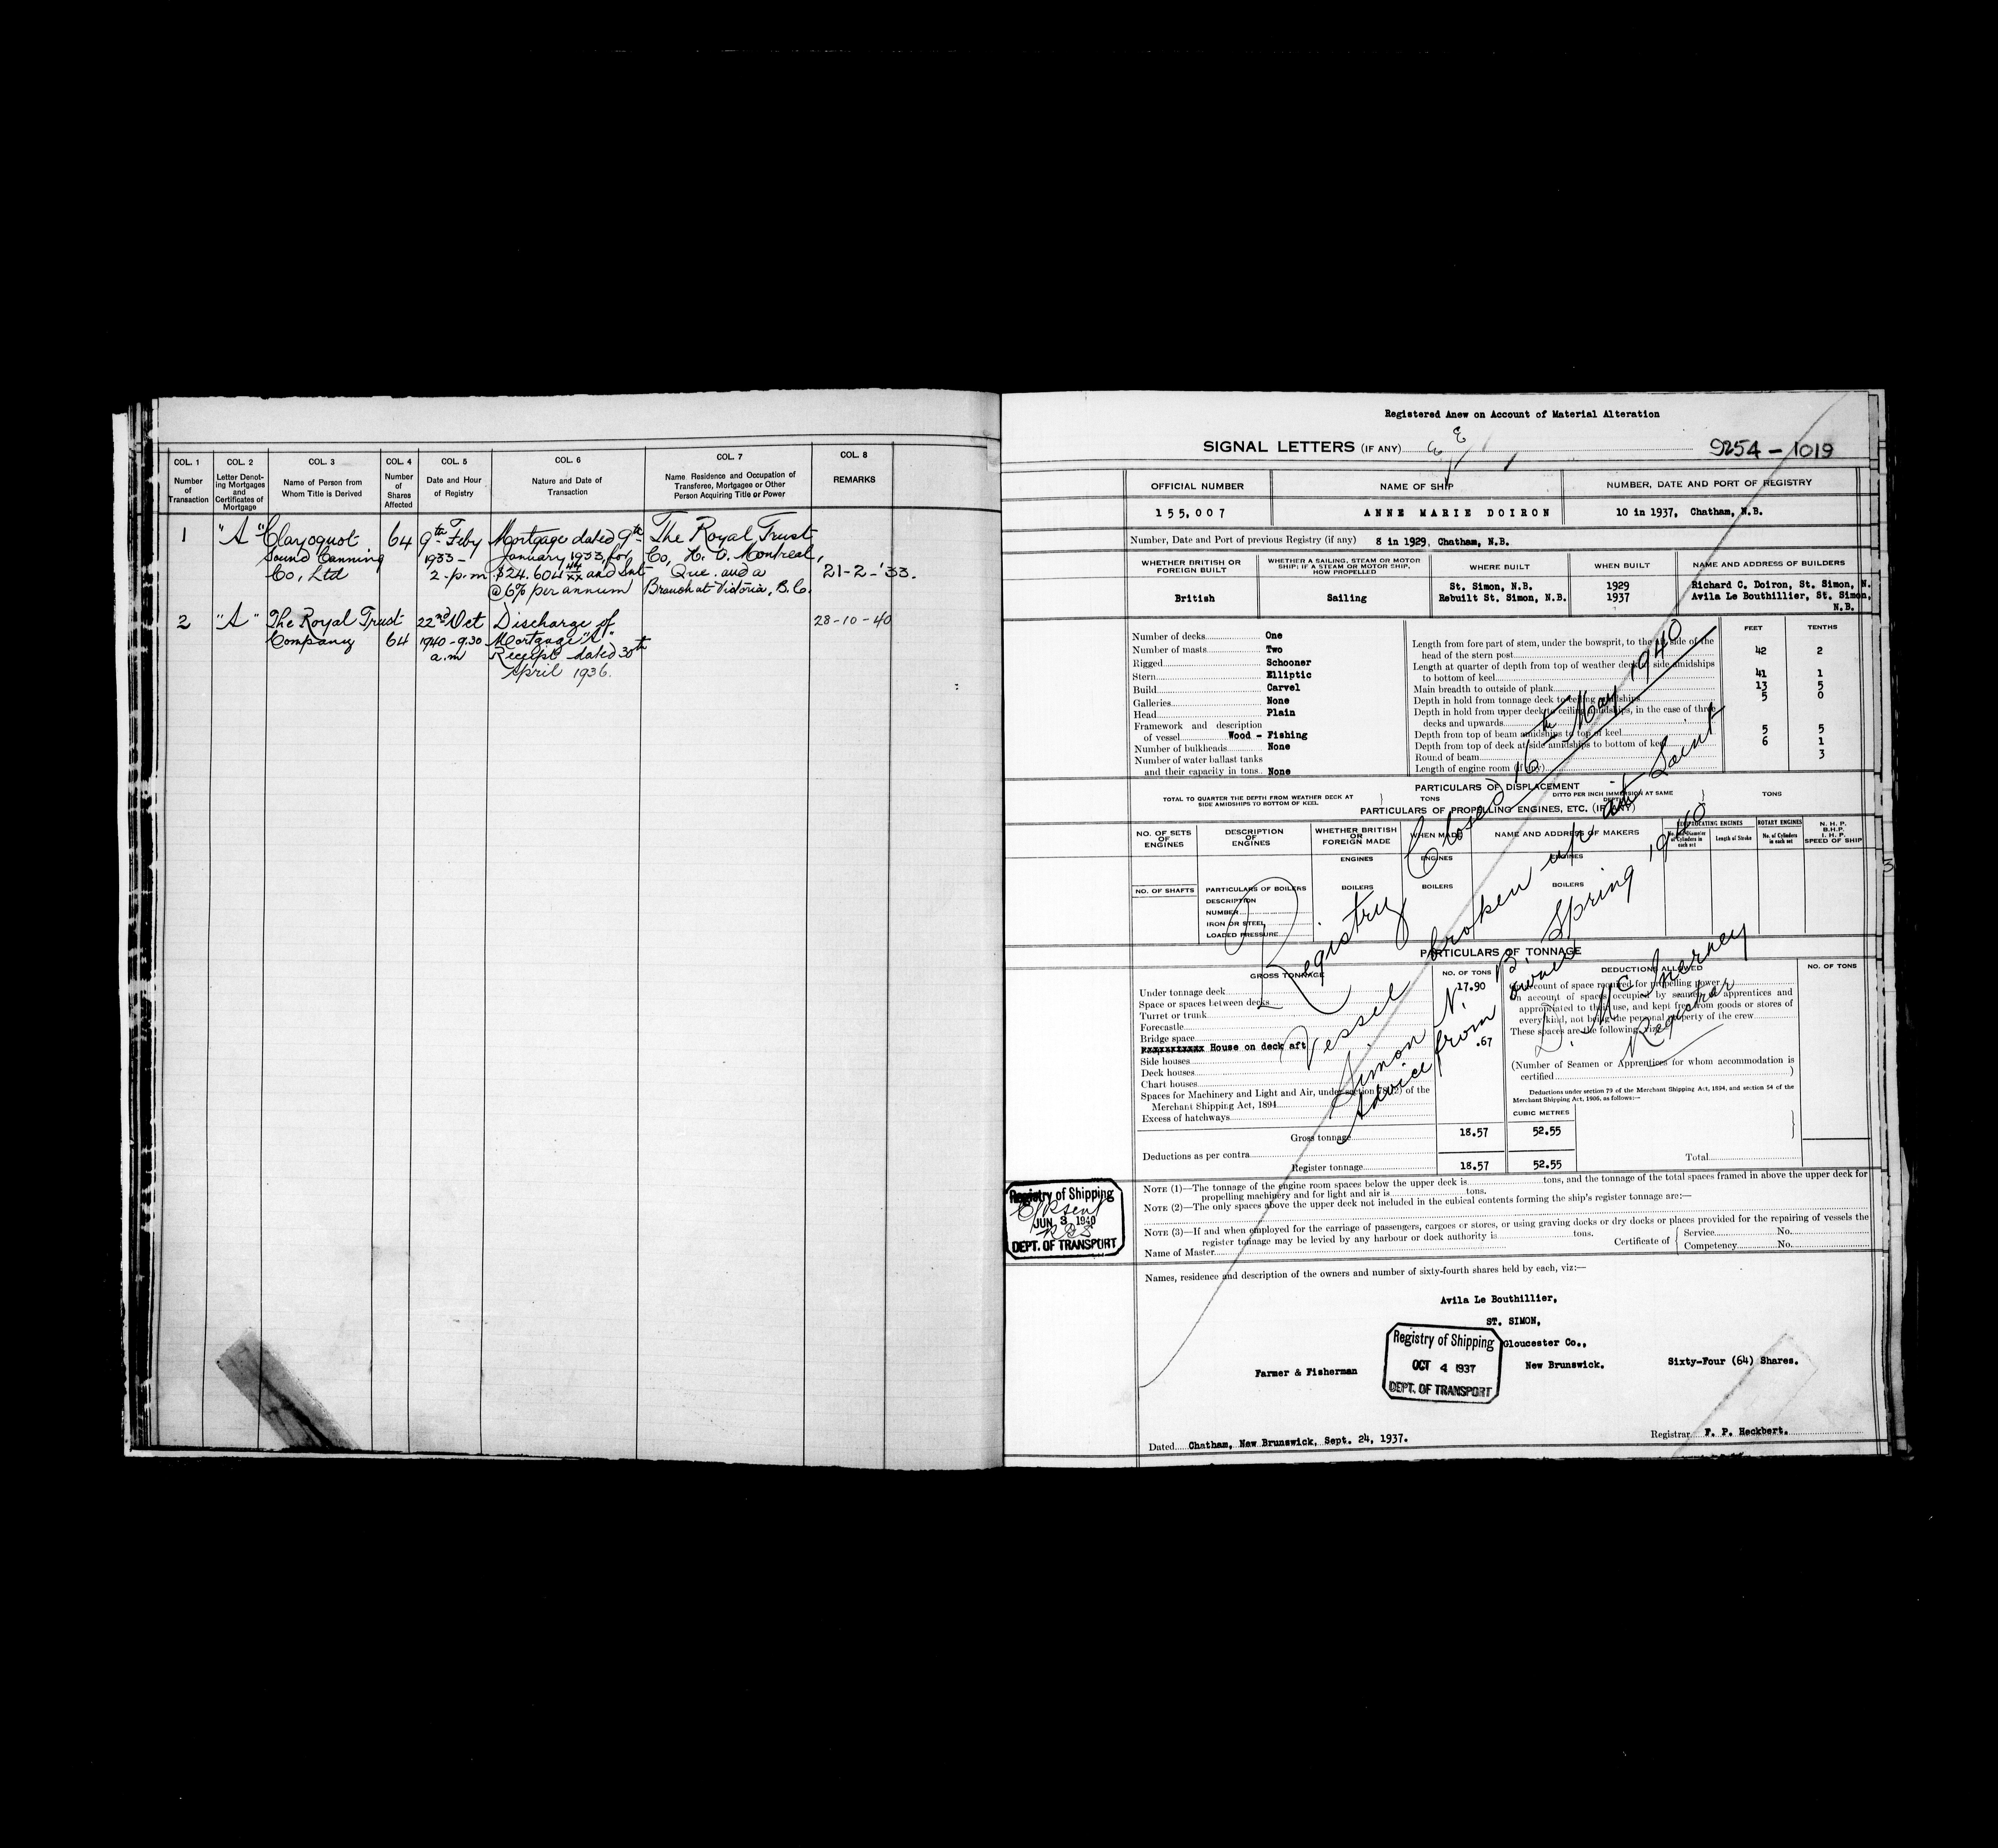 COL. 1 COL. 2 COL. 3 COL. 4 COL. 5 COL. 6 COL. 7 COL. 8
Number of Transaction
Letter Denoting Mortgages and Certificates of Mortgage
Name of Person from Whom Title is Derived
Number of Shares Affected
Date and Hour of Registry
Nature and Date of Transaction
Name Residence and Occupation of Transferee, Mortgagee or Other Person Acquiring Title or Power
REMARKS
1 "A" Clayoquot 64 9th Feby Mortgage dated 9th The Royal Trust
Sound Canning 1933 - January 1933, for Co, H. O. Montreal,
Co, Ltd 2-p.m. $24.604 44/xx and Int Que. and a 21-2-'33.
@ 6% per annum Branch at Victoria, B.C.
2 "A" The Royal Trust 22nd Oct Discharge of 28-10-40
Company 64 1940-9.30 Mortgage "A"
a.m Receipt dated 30th
April 1936.
Registered Anew on Account of Material Alteration
SIGNAL LETTERS (IF ANY)
9254-1019
OFFICIAL NUMBER NAME OF SHIP NUMBER, DATE AND PORT OF REGISTRY
155,007 ANNE MARIE DOIRON 10 in 1937, Chatham, N.B.
Number, Date and Port of previous Registry (if any) 8 in 1929, Chatham, N.B.
WHETHER BRITISH OR FOREIGN BUILT
WHETHER A SAILING, STEAM OR MOTOR SHIP; IF A STEAM OR MOTOR SHIP, HOW PROPELLED
WHERE BUILT WHEN BUILT NAME AND ADDRESS OF BUILDERS
St. Simon, N.B. 1929 Richard C. Doiron, St. Simon, N.
British Sailing Rebuilt St. Simon, N.B. 1937 Avila Le Bouthillier, St. Simon,
N.B.
FEET TENTHS
Number of decks One
Number of masts Two
Rigged Schooner
Stern Elliptic
Build Carvel
Galleries None
Head Plain
Framework and description
of vessel Wood - Fishing
Number of bulkheads None
Number of water ballast tanks
and their capacity in tons None
Length from fore part of stem, under the bowsprit, to the aft side of the
head of the stern post 42 2
Length at quarter of depth from top of weather deck at side amidships
to bottom of keel 41 1
Main breadth to outside of plank 13 5
Depth in hold from tonnage deck to ceiling amidships 5 0
Depth in hold from upper deck to ceiling amidships, in the case of three
decks and upwards
Depth from top of beam amidships to top of keel 5 5
Depth from top of deck at side amidships to bottom of keel 6 1
Round of beam 3
Length of engine room (if any)
PARTICULARS OF DISPLACEMENT
TOTAL TO QUARTER THE DEPTH FROM WEATHER DECK AT SIDE AMIDSHIPS TO BOTTOM OF KEEL TONS
DITTO PER INCH IMMERSION AT SAME DEPTH TONS
PARTICULARS OF PROPELLING ENGINES, ETC. (IF ANY)
NO. OF SETS OF ENGINES
DESCRIPTION OF ENGINES
WHETHER BRITISH OR FOREIGN MADE
WHEN MADE
NAME AND ADDRESS OF MAKERS
RECIPROCATING ENGINES
No. and Diameter of Cylinders in each set
Length of Stroke
ROTARY ENGINES
No. of Cylinders in each set
N. H. P.
B.H.P.
I. H. P.
SPEED OF SHIP
ENGINES ENGINES ENGINES
NO. OF SHAFTS
PARTICULARS OF BOILERS BOILERS BOILERS BOILERS
DESCRIPTION
NUMBER
IRON OR STEEL
LOADED PRESSURE
Registry Closed 16th May 1940
Vessel broken up at Saint
Simon N. B. Spring 1940
Advice from owner
D. McInerney
Registrar
PARTICULARS OF TONNAGE
GROSS TONNAGE NO. OF TONS DEDUCTIONS ALLOWED NO. OF TONS
Under tonnage deck 17.90
Space or spaces between decks
Turret or trunk
Forecastle
Bridge space
House on deck aft .67
Side houses
Deck houses
Chart houses
Spaces for Machinery and Light and Air, under section 78(2) of the
Merchant Shipping Act, 1894
Excess of hatchways
On account of space required for propelling power
On account of spaces occupied by seamen or apprentices and
appropriated to their use, and kept free from goods or stores of
every kind, not being the personal property of the crew
These spaces are the following, viz:
(Number of Seamen or Apprentices for whom accommodation is
certified )
Deductions under section 79 of the Merchant Shipping Act, 1894, and section 54 of the
Merchant Shipping Act, 1906, as follows:—
CUBIC METRES
Gross tonnage 18.57 52.55
Deductions as per contra
Register tonnage 18.57 52.55
Total
NOTE (1)—The tonnage of the engine room spaces below the upper deck is tons, and the tonnage of the total spaces framed in above the upper deck for
propelling machinery and for light and air is tons.
NOTE (2)—The only spaces above the upper deck not included in the cubical contents forming the ship's register tonnage are:—
NOTE (3)—If and when employed for the carriage of passengers, cargoes or stores, or using graving docks or dry docks or places provided for the repairing of vessels the
register tonnage may be levied by any harbour or dock authority is tons.
Name of Master
Certificate of Service No.
Competency No.
Registry of Shipping
JUN 3 1940
DEPT. OF TRANSPORT
Names, residence and description of the owners and number of sixty-fourth shares held by each, viz:—
Avila Le Bouthillier,
ST. SIMON,
Gloucester Co.,
Farmer & Fisherman New Brunswick. Sixty-Four (64) Shares.
Registry of Shipping
OCT 4 1937
DEPT. OF TRANSPORT
Dated Chatham, New Brunswick, Sept. 24, 1937.
Registrar F. P. Heckbert.